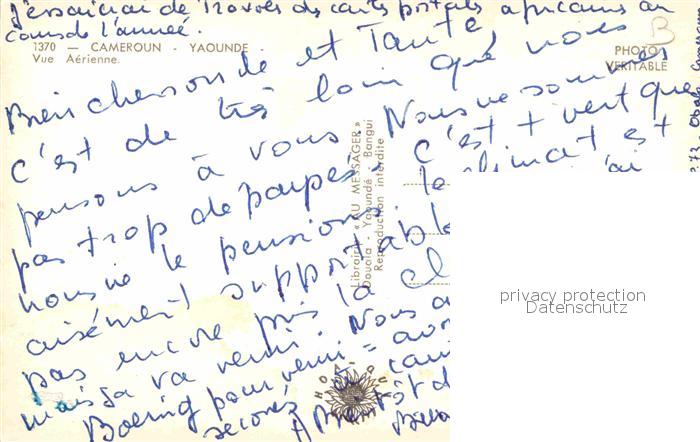 J'essaierai de trouver des cartes postales africaines au
cours de l'année.
1370 — CAMEROUN - YAOUNDE -
Vue Aérienne.
PHOTO
VERITABLE
B
Bien chers oncle et Tante,
c'est de très loin que nous
pensons à vous. Nous ne sommes
pas trop dépaysés, c'est + vert que
nous ne le pensions. le climat est
aisément supportable
pas encore pris la
mais ça va venir. Nous
Boeing pour venir =
secoués
Bientôt
Librairie « AU MESSAGER »
Douala - Yaoundé - Bangui
Reproduction interdite
HOA-QUI
privacy protection
Datenschutz